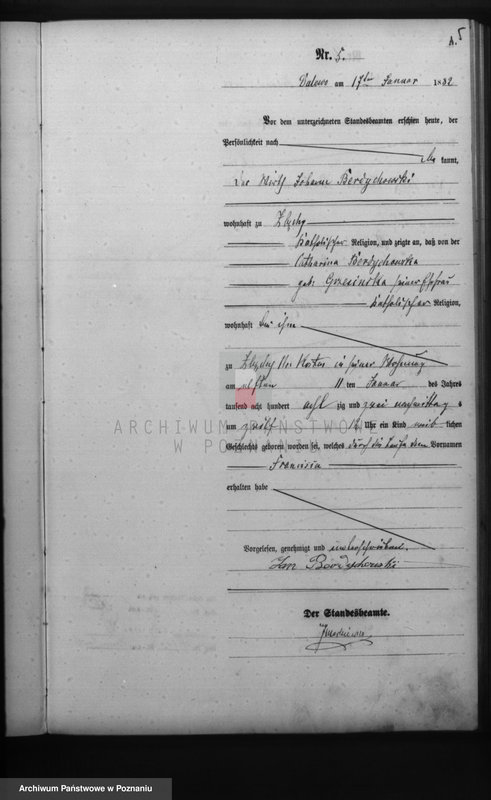 A. 5
Nr. 5.
Dalewo am 17ten Januar 1882
Vor dem unterzeichneten Standesbeamten erschien heute, der
Persönlichkeit nach
kannt,
der Wirth Johann Berdychowski
wohnhaft zu
katholischer Religion, und zeigte an, daß von der
Catharina Berdychowska
geb. seiner Ehefrau
katholischer Religion,
wohnhaft bei ihm
zu in seiner Wohnung
am elften 11 ten Januar des Jahres
tausend acht hundert acht zig und zwei nachmittag s
um zwölf 12 Uhr ein Kind weib lichen
ARCHIWUM PAŃSTWOWE
W POZNANIU
Geschlechts geboren worden sei, welches Vornamen
erhalten habe
Vorgelesen, genehmigt und unterschrieben.
Jan Berdychowski
Der Standesbeamte.
Archiwum Państwowe w Poznaniu